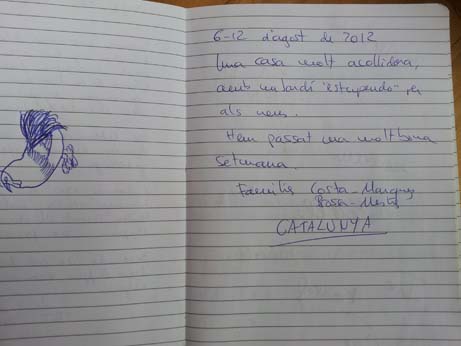 6-12 d'agost de 2012
Una casa molt acollidora,
amb un jardí "estupendo" per
als nens.
Hem passat una molt bona
setmana.
Famílies Costa-Marquès
CATALUNYA